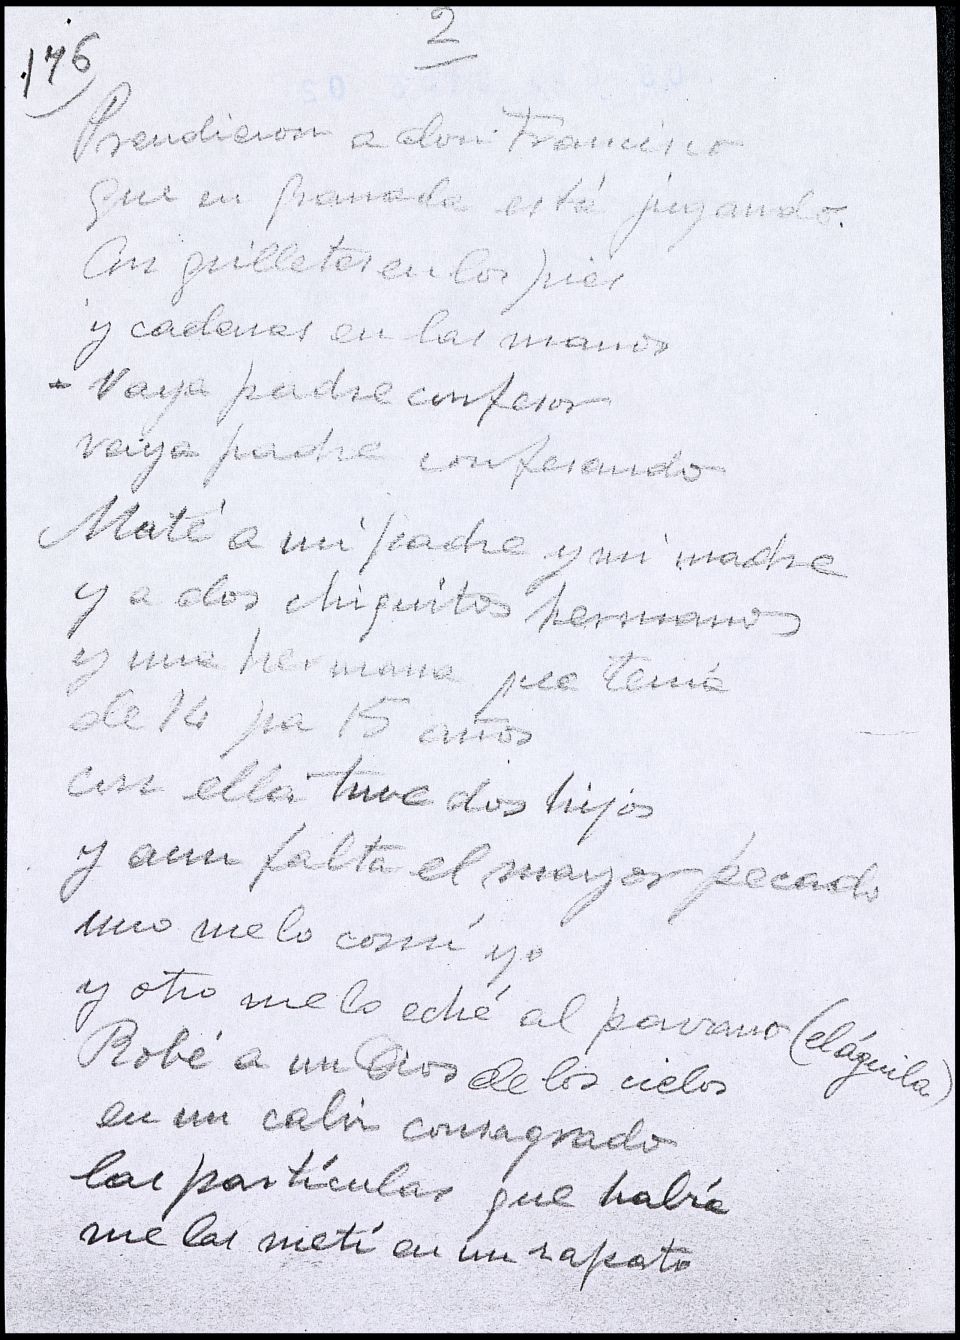 2
176
Prendieron a don Francisco
que en Granada está jugando.
Con grilletes en los pies
y cadenas en las manos
- Vaya padre confesor
vaya padre confesando
Maté a mi padre y mi madre
y a dos chiquitos hermanos
y una hermana que tenía
de 14 pa 15 años
con ella tuve dos hijos
y aun falta el mayor pecado
uno me lo comí yo
y otro me lo eché al (el águila)
Robé a un Dios de los cielos
en un caliz consagrado
las partículas que había
me las metí en un zapato